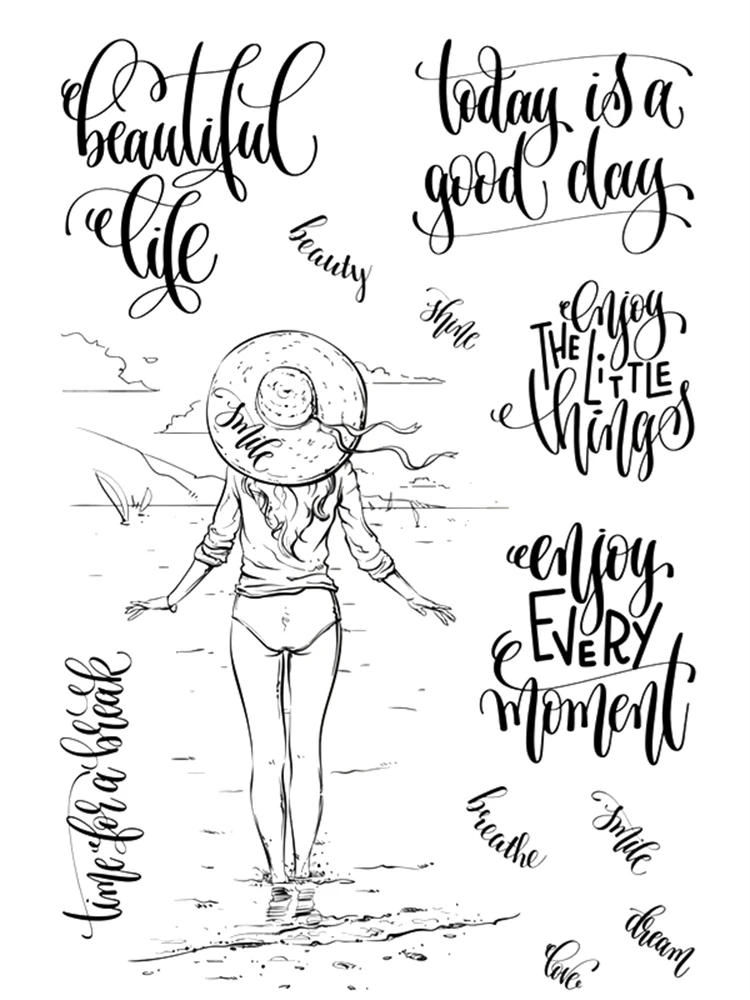 beautiful
life
today is a
good day
beauty
shine
enjoy
THE LiTTLE
things
smile
enjoy
EVERY
moment
time for a break
breathe
smile
dream
love